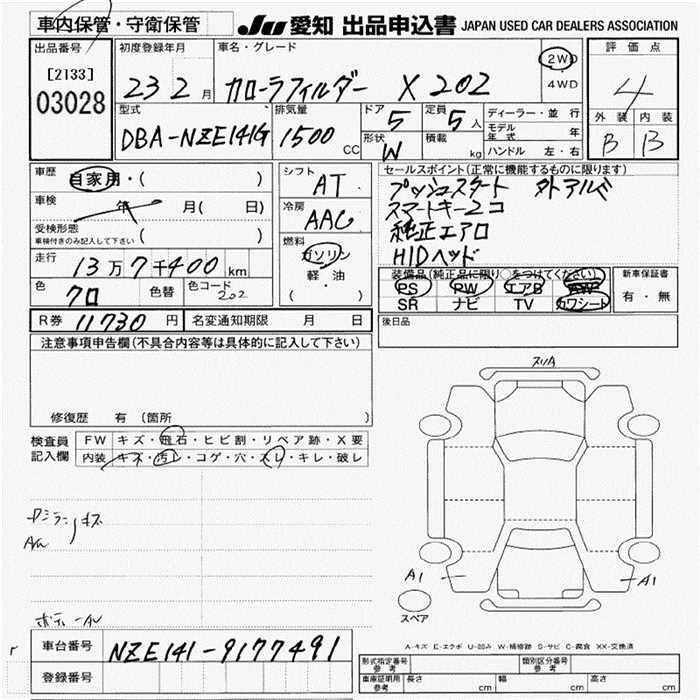 車内保管・守衛保管
JU 愛知 出品申込書 JAPAN USED CAR DEALERS ASSOCIATION
出品番号 初度登録年月 車名・グレード 評価点
[2133]
03028
23 2月 カローラフィルダー X 202
2WD
・
4WD
4
型式 排気量 ドア 定員
DBA-NZE141G 1500CC 5 5人
形状 積載
W kg
ディーラー・並行
モデル年式 年
ハンドル 左・右
外装 内装
B B
車歴 自家用・( )
車検 年 月( 日)
受検形態
車検付きのみ記入して下さい ( )
走行 13万7千400km
色 クロ 色替 色コード 202
シフト
AT
冷房
AAC
燃料
ガソリン
軽・油
( )
セールスポイント(正常に機能するものに限ります)
プッシュスタート 外アルミ
スマートキー2コ
純正エアロ
HIDヘッド
装備品(純正品に限り○をつけてください)
PS PW エアB AW
SR ナビ TV カワシート
新車保証書
有・無
R券 11730円 名変通知期限 月 日
後日品
注意事項申告欄(不具合内容等は具体的に記入して下さい)
修復歴 有 (箇所 )
検査員記入欄
FW キズ・飛石・ヒビ割・リペア跡・X要
内装 キズ・汚レ・コゲ・穴・スレ・キレ・破レ
スリA
A1
A1
スペア
A-キズ E-エクボ U-凹み W-補修跡 S-サビ C-腐食 XX-交換済
車台番号 NZE141-9177491
登録番号
形式指定番号 参考 類別区分番号 参考
車庫証明用 参考 長さ cm 幅 cm 高さ cm